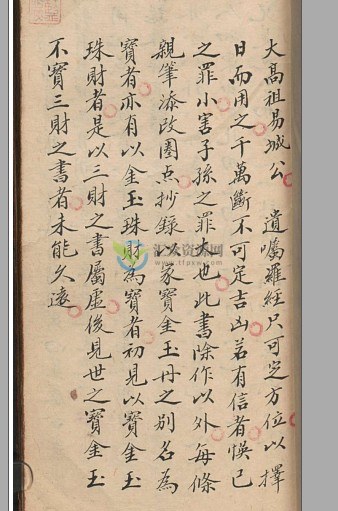 大高祖易城公 遺囑羅經只可定方位以擇
日而用之千萬斷不可定吉凶若有信者悞己
之罪小害子孫之罪大也此書除作以外每條
親筆添改圈点抄錄以家寶金玉丹之別名為
寶者亦有以金玉珠財為寶者初見以寶金玉
珠財者是以三財之書屬虛後見世之寶金玉
不寶三財之書者未能久遠
www.tfpxw.com